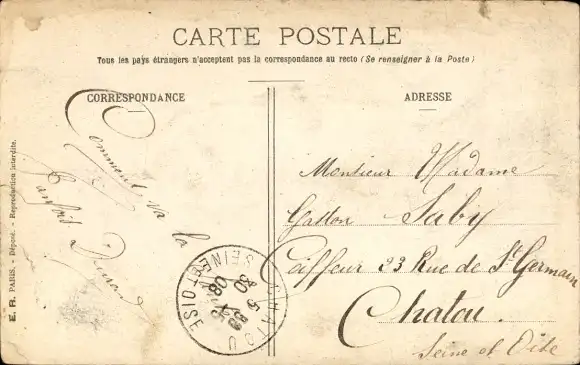 CARTE POSTALE
Tous les pays étrangers n'acceptent pas la correspondance au recto (Se renseigner à la Poste)
CORRESPONDANCE
Comment va la
à
ADRESSE
Monsieur Madame
Gaston Suby
Coiffeur 33 Rue de St Germain
Chatou.
Seine et Oise
CHATOU
SEINE-ET-OISE
E. R. PARIS. - Déposé. - Reproduction interdite.